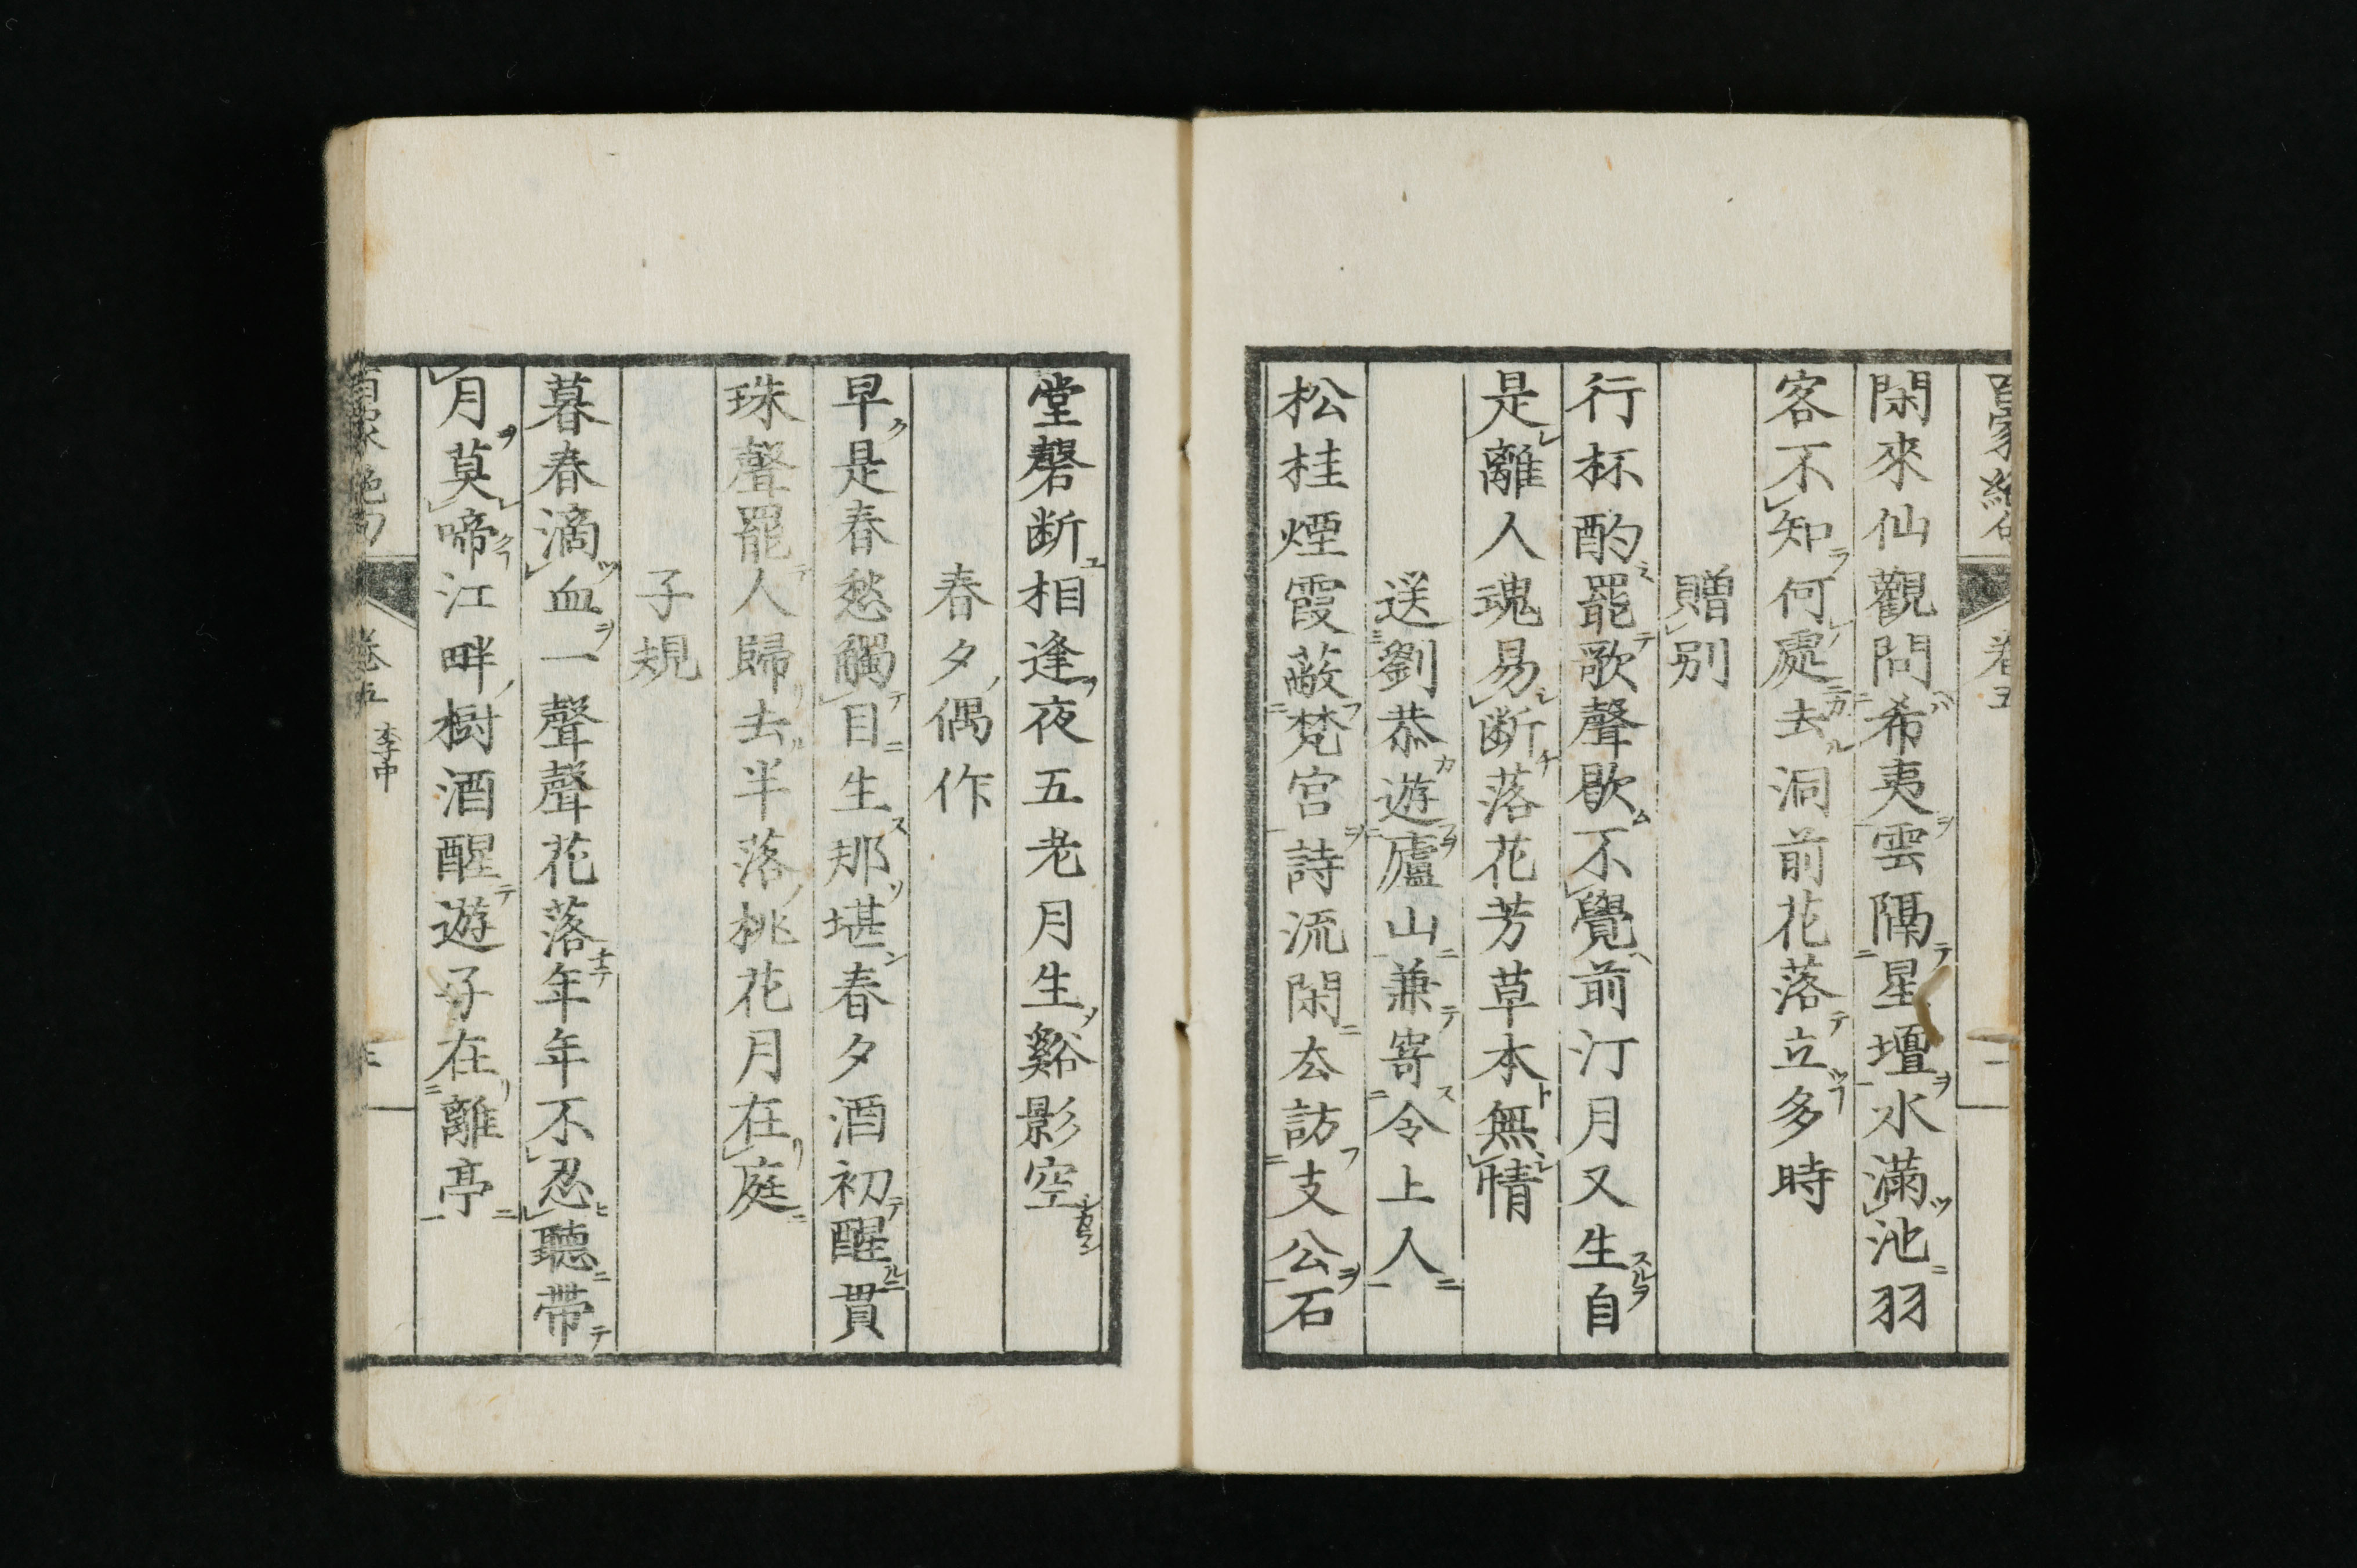 百家絶句 卷五
閑來仙觀問希夷雲隔星壇水滿池羽
客不知何處去洞前花落立多時
贈別
行杯酌罷歌聲歇不覺前汀月又生自
是離人魂易斷落花芳草本無情
送劉恭遊廬山兼寄令上人
松桂煙霞蔽梵宮詩流閑去訪支公石
堂磬斷相逢夜五老月生谿影空
春夕偶作
早是春愁觸目生那堪春夕酒初醒貫
珠聲罷人歸去半落桃花月在庭
子規
暮春滴血一聲聲花落年年不忍聽帶
月莫啼江畔樹酒醒遊子在離亭
百家絶句 卷五 李中